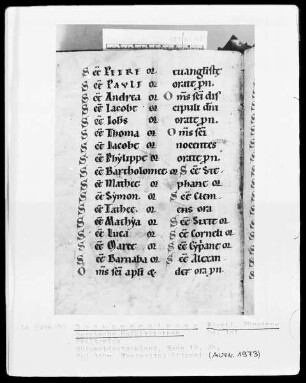 S cē PETRE or
S cē PAVLE or
S cē Andrea or
S cē Iacobe or
S cē Iohs or
S cē Thoma or
S cē Iacobe or
S cē Phylippe or
S cē Bartholomee or
S cē Mathee or
S cē Symon or
S cē Tathee or
S cē Mathya or
S cē Luca or
S cē Marce or
S cē Barnaba or
O mīs sci apli &
euangliste
orate ꝓn.
O mīs sci dis
cipuli dni
orate ꝓn.
O mīs sci
nocentes
orate ꝓn.
S cē Ste
phane or
S cē Clem
ens ora
S cē Sixte or
S cē Corneli or
S cē Cypane or
S cē Alexan
der ora ꝓn.
(AUFN. 1973)